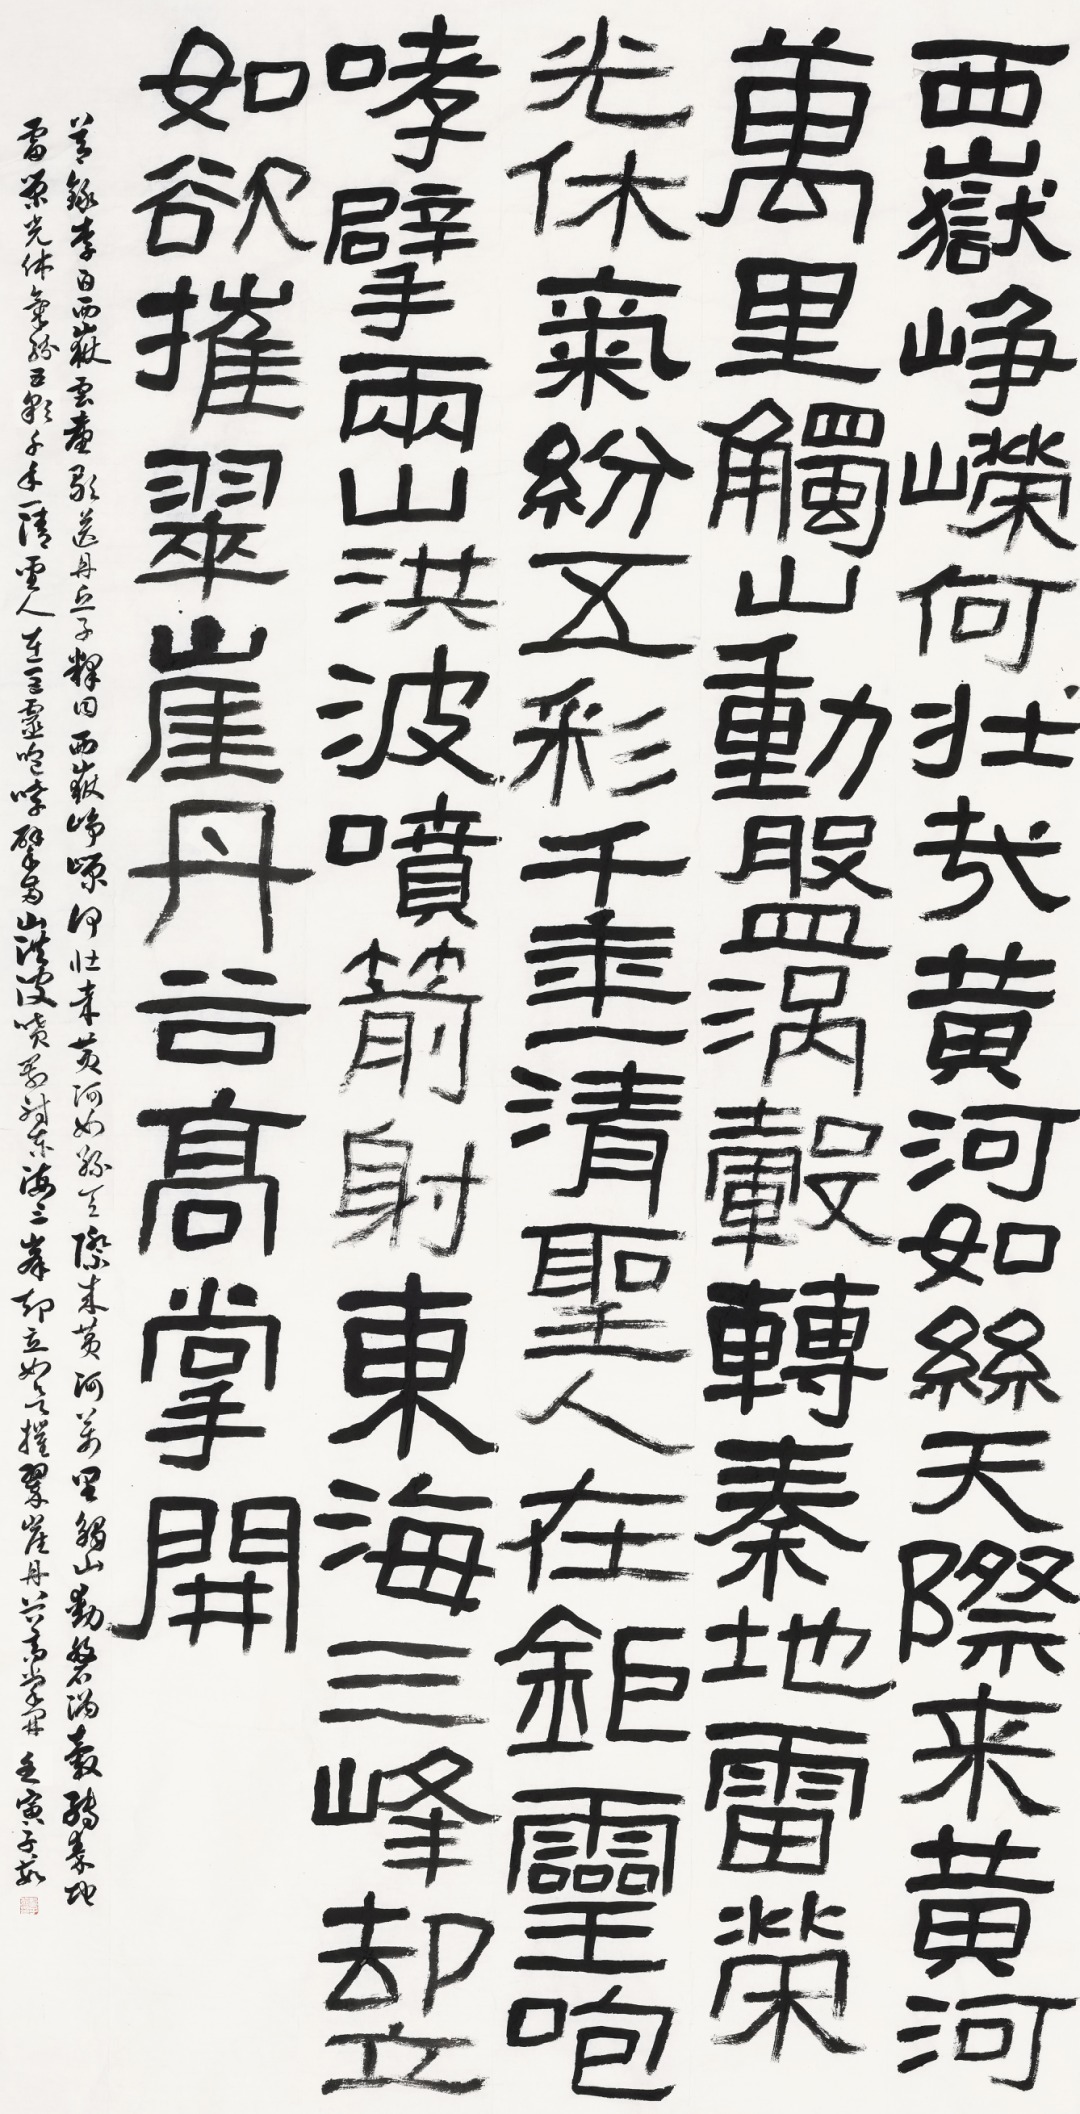 西嶽崢嶸何壯哉黃河如絲天際来黃河
萬里觸山動盤渦轂轉秦地雷榮
光休氣紛五彩千年一清聖人在鉅靈咆
哮擘兩山洪波噴箭射東海三峰却立
如欲摧翠崖丹谷高掌開
节録李白西嶽雲臺歌送丹丘子釋文西嶽崢嶸何壯哉黃河如絲天際来黃河萬里觸山動盤渦轂轉秦地
雷榮光休氣紛五彩千年一清聖人在巨靈咆哮擘兩山洪波噴箭射東海三峯却立如欲摧翠崖丹谷高掌開 壬寅子叙